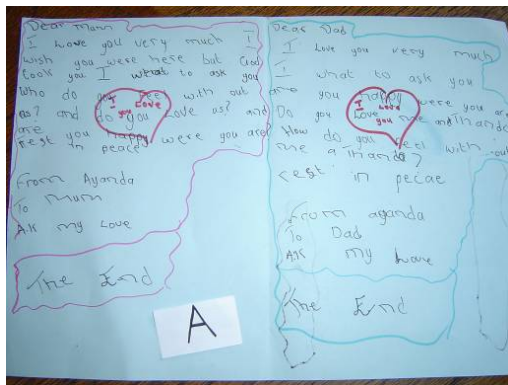 Dear Mum
I Love you very much I
wish you were here but God
took you I what to ask you
Who do you feel with out
us? and do you Love us? and
are you happy were you are?
rest in peace
I Love
you
From Ayanda
To Mum
Ask my Love
The End
Dear Dad
I Love you very much
I what to ask you
are you happy were you are
Do you Love me and Thando
How do you feel with out
me a Thando?
rest in pecae
I Love
you
From ayanda
To Dad
Ask my Love
The End
A